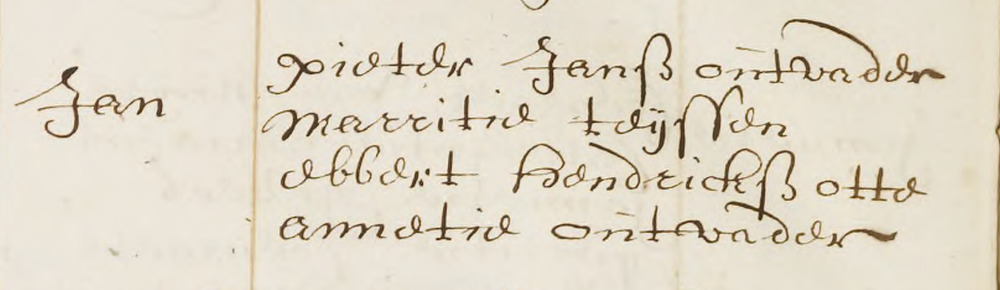 Jan
pieter Janß ontvader
Marritie teÿssen
ebbert Hendrickß otte
annetie ontvader